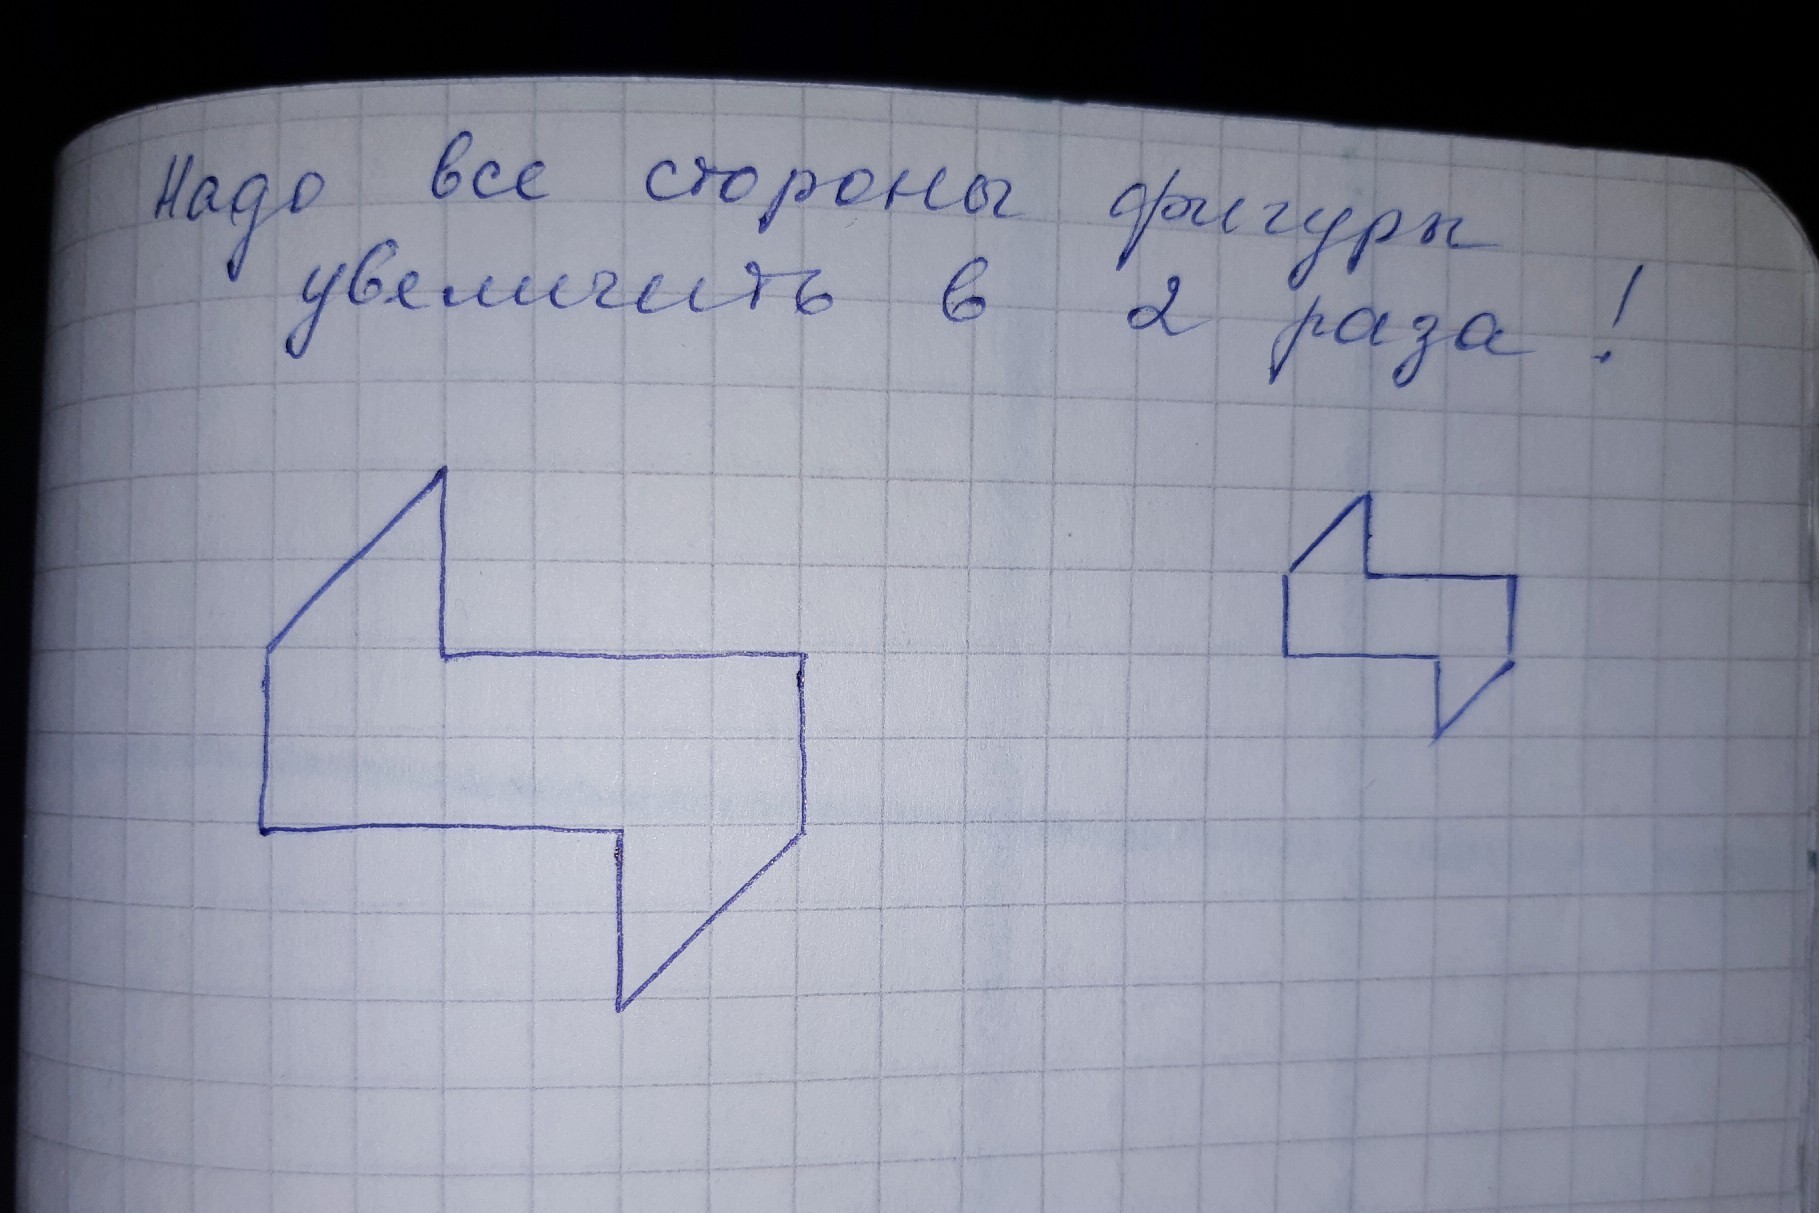 Надо все стороны фигуры
увеличить в 2 раза!